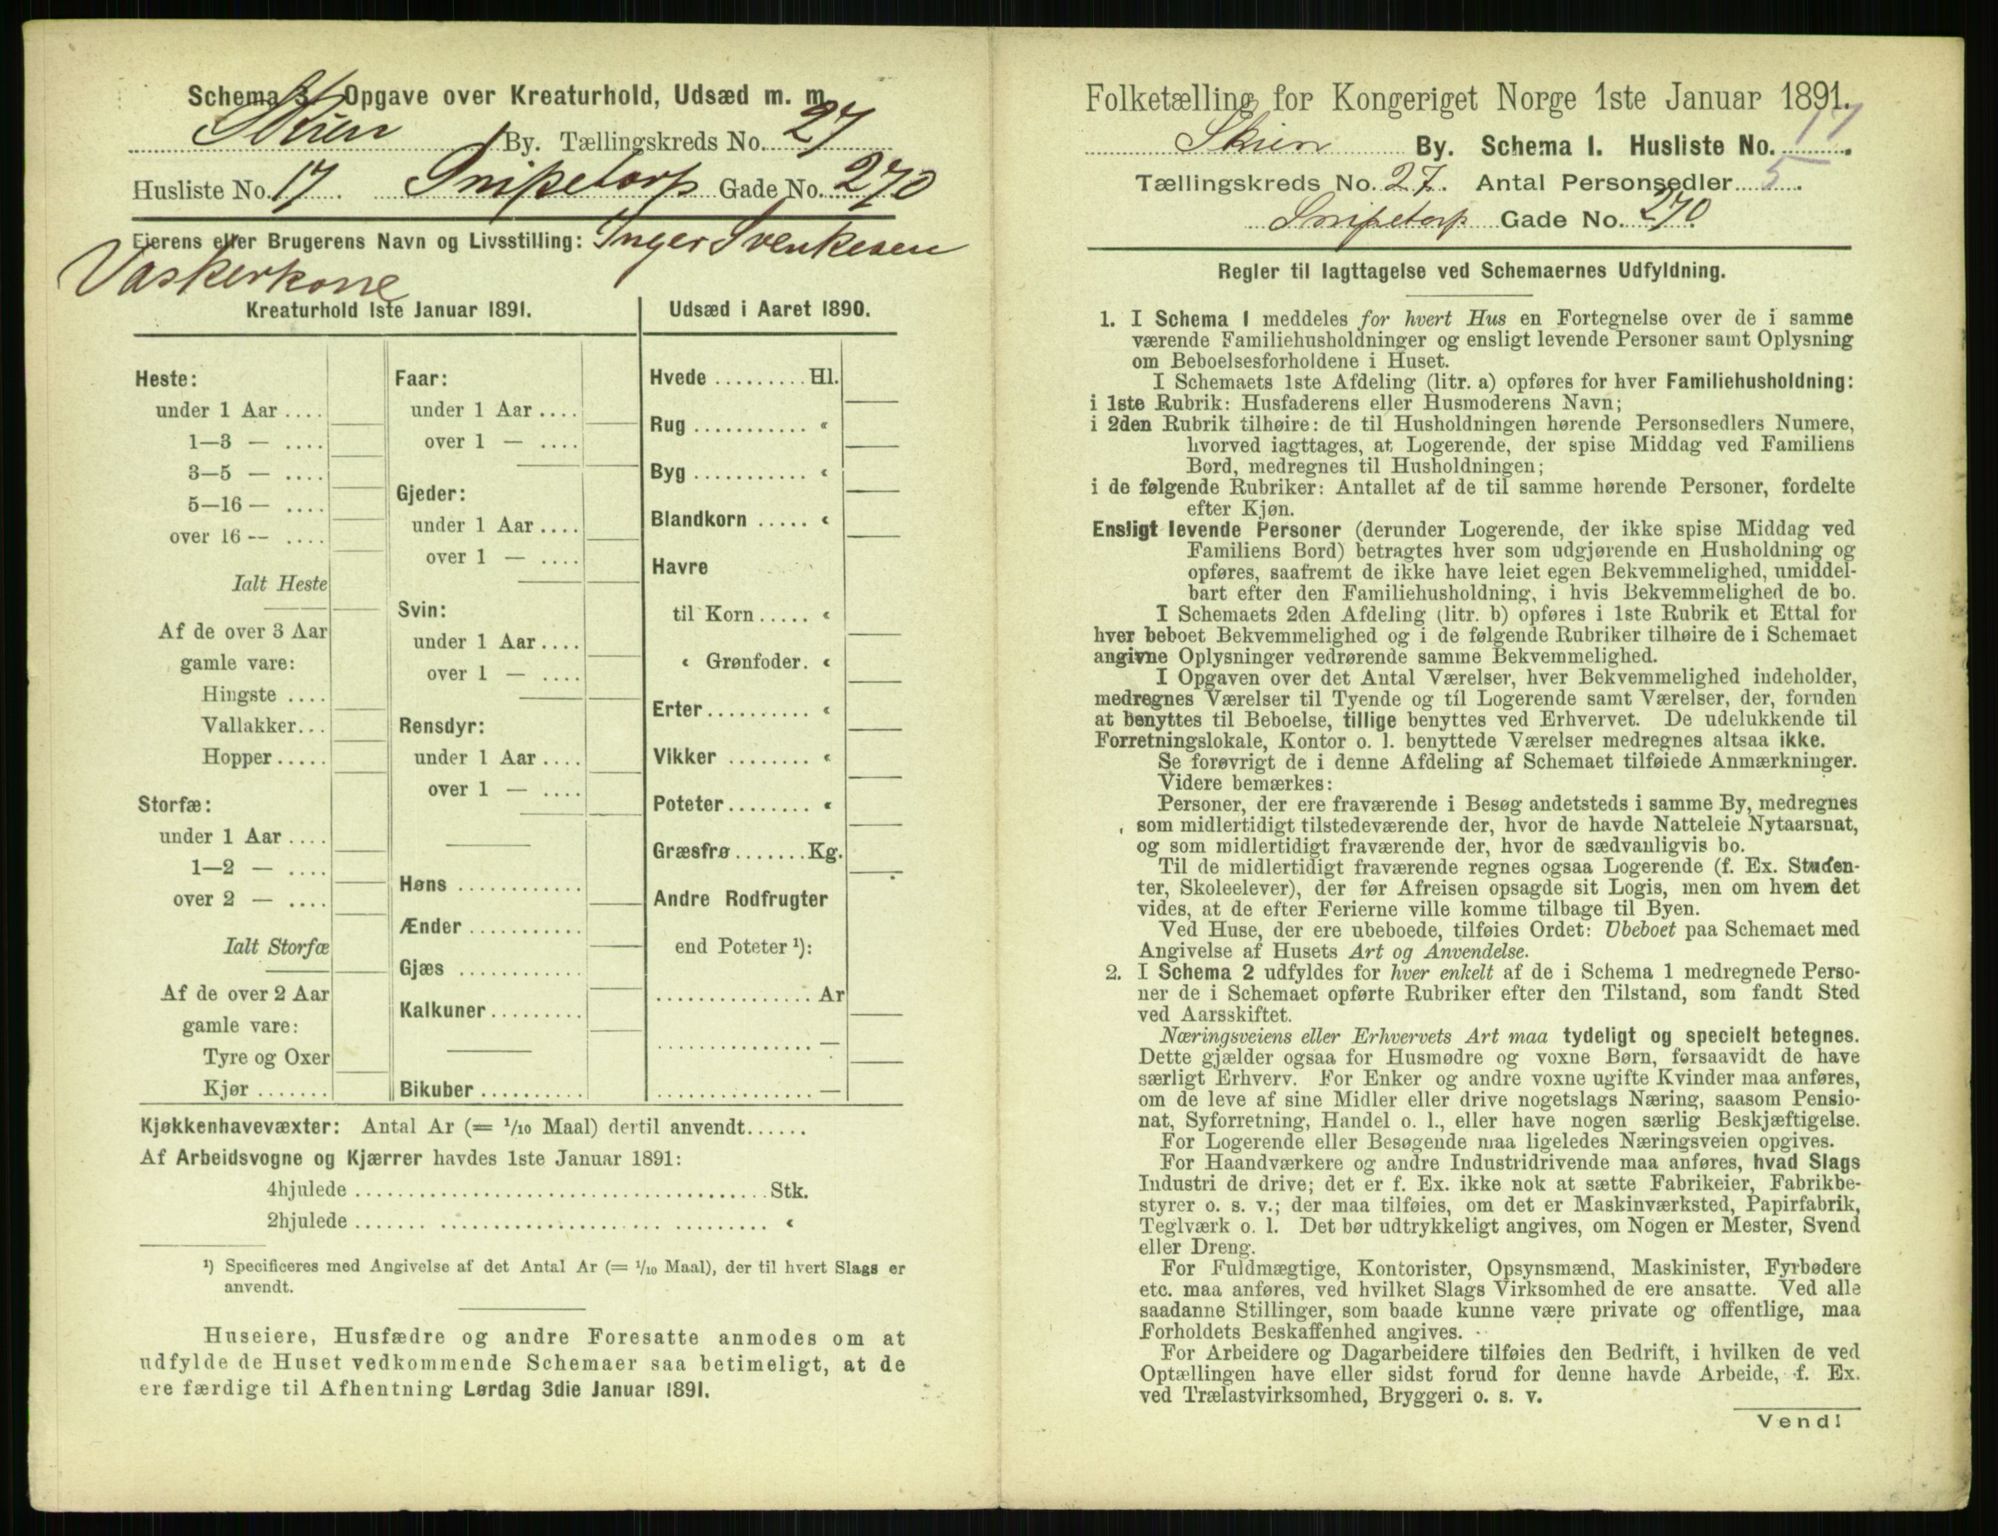 Schema 3. Opgave over Kreaturhold, Udsæd m. m.
Skien By. Tællingskreds No. 27
Husliste No. 17 Snipetorp Gade No. 270
Eierens eller Brugerens Navn og Livsstilling: Inger Svenkesen
Vaskerkone
Kreaturhold 1ste Januar 1891.
Heste:
under 1 Aar ....
1—3 — ....
3—5 — ....
5—16 — ....
over 16 — ....
Ialt Heste
Af de over 3 Aar
gamle vare:
Hingste ....
Vallakker...
Hopper.....
Storfæ:
under 1 Aar ....
1—2 — ....
over 2 — ....
Ialt Storfæ
Af de over 2 Aar
gamle vare:
Tyre og Oxer
Kjør .......
Faar:
under 1 Aar ....
over 1 — ....
Gjeder:
under 1 Aar ....
over 1 — ....
Svin:
under 1 Aar ....
over 1 — ....
Rensdyr:
under 1 Aar ....
over 1 — ....
Høns ............
Ænder ...........
Gjæs ............
Kalkuner.........
Bikuber ..........
Udsæd i Aaret 1890.
Hvede ......... Hl.
Rug ........... “
Byg ........... “
Blandkorn ..... “
Havre
til Korn..... “
“ Grønfoder. “
Erter.......... “
Vikker ........ “
Poteter........ “
Græsfrø.......Kg.
Andre Rodfrugter
end Poteter ¹):
............... Ar
............... —
............... —
Kjøkkenhavevæxter: Antal Ar (= 1/10 Maal) dertil anvendt......
Af Arbeidsvogne og Kjærrer havdes 1ste Januar 1891:
4hjulede ....................................... Stk.
2hjulede ....................................... “
¹) Specificeres med Angivelse af det Antal Ar (= 1/10 Maal), der til hvert Slags er
anvendt.
Huseiere, Husfædre og andre Foresatte anmodes om at
udfylde de Huset vedkommende Schemaer saa betimeligt, at de
ere færdige til Afhentning Lørdag 3die Januar 1891.
Folketælling for Kongeriget Norge 1ste Januar 1891.
Skien By. Schema 1. Husliste No. 17
Tællingskreds No. 27. Antal Personsedler 5
Snipetorp Gade No. 270.
Regler til Iagttagelse ved Schemaernes Udfyldning.
1. I Schema 1 meddeles for hvert Hus en Fortegnelse over de i samme
værende Familiehusholdninger og ensligt levende Personer samt Oplysning
om Beboelsesforholdene i Huset.
I Schemaets 1ste Afdeling (litr. a) opføres for hver Familiehusholdning:
i 1ste Rubrik: Husfaderens eller Husmoderens Navn;
i 2den Rubrik tilhøire: de til Husholdningen hørende Personsedlers Numere,
hvorved iagttages, at Logerende, der spise Middag ved Familiens
Bord, medregnes til Husholdningen;
i de følgende Rubriker: Antallet af de til samme hørende Personer, fordelte
efter Kjøn.
Ensligt levende Personer (derunder Logerende, der ikke spise Middag ved
Familiens Bord) betragtes hver som udgjørende en Husholdning og
opføres, saafremt de ikke have leiet egen Bekvemmelighed, umiddel-
bart efter den Familiehusholdning, i hvis Bekvemmelighed de bo.
I Schemaets 2den Afdeling (litr. b) opføres i 1ste Rubrik et Ettal for
hver beboet Bekvemmelighed og i de følgende Rubriker tilhøire de i Schemaet
angivne Oplysninger vedrørende samme Bekvemmelighed.
I Opgaven over det Antal Værelser, hver Bekvemmelighed indeholder,
medregnes Værelser til Tyende og til Logerende samt Værelser, der, foruden
at benyttes til Beboelse, tillige benyttes ved Erhvervet. De udelukkende til
Forretningslokale, Kontor o. l. benyttede Værelser medregnes altsaa ikke.
Se forøvrigt de i denne Afdeling af Schemaet tilføiede Anmærkninger.
Videre bemærkes:
Personer, der ere fraværende i Besøg andetsteds i samme By, medregnes
som midlertidigt tilstedeværende der, hvor de havde Natteleie Nytaarsnat,
og som midlertidigt fraværende der, hvor de sædvanligvis bo.
Til de midlertidigt fraværende regnes ogsaa Logerende (f. Ex. Studen-
ter, Skoleelever), der før Afreisen opsagde sit Logis, men om hvem det
vides, at de efter Ferierne ville komme tilbage til Byen.
Ved Huse, der ere ubeboede, tilføies Ordet: Ubeboet paa Schemaet med
Angivelse af Husets Art og Anvendelse.
2. I Schema 2 udfyldes for hver enkelt af de i Schema 1 medregnede Perso-
ner de i Schemaet opførte Rubriker efter den Tilstand, som fandt Sted
ved Aarsskiftet.
Næringsveiens eller Erhvervets Art maa tydeligt og specielt betegnes.
Dette gjælder ogsaa for Husmødre og voxne Børn, forsaavidt de have
særligt Erhverv. For Enker og andre voxne ugifte Kvinder maa anføres,
om de leve af sine Midler eller drive nogetslags Næring, saasom Pensio-
nat, Syforretning, Handel o. l., eller have nogen særlig Beskjæftigelse.
For Logerende eller Besøgende maa ligeledes Næringsveien opgives.
For Haandværkere og andre Industridrivende maa anføres, hvad Slags
Industri de drive; det er f. Ex. ikke nok at sætte Fabrikeier, Fabrikbe-
styrer o. s. v.; der maa tilføies, om det er Maskinværksted, Papirfabrik,
Teglværk o. l. Det bør udtrykkeligt angives, om Nogen er Mester, Svend
eller Dreng.
For Fuldmægtige, Kontorister, Opsynsmænd, Maskinister, Fyrbødere
etc. maa anføres, ved hvilket Slags Virksomhed de ere ansatte. Ved alle
saadanne Stillinger, som baade kunne være private og offentlige, maa
Forholdets Beskaffenhed angives.
For Arbeidere og Dagarbeidere tilføies den Bedrift, i hvilken de ved
Optællingen have eller sidst forud for denne havde Arbeide, f. Ex.
ved Trælastvirksomhed, Bryggeri o. s. v.
Vend!